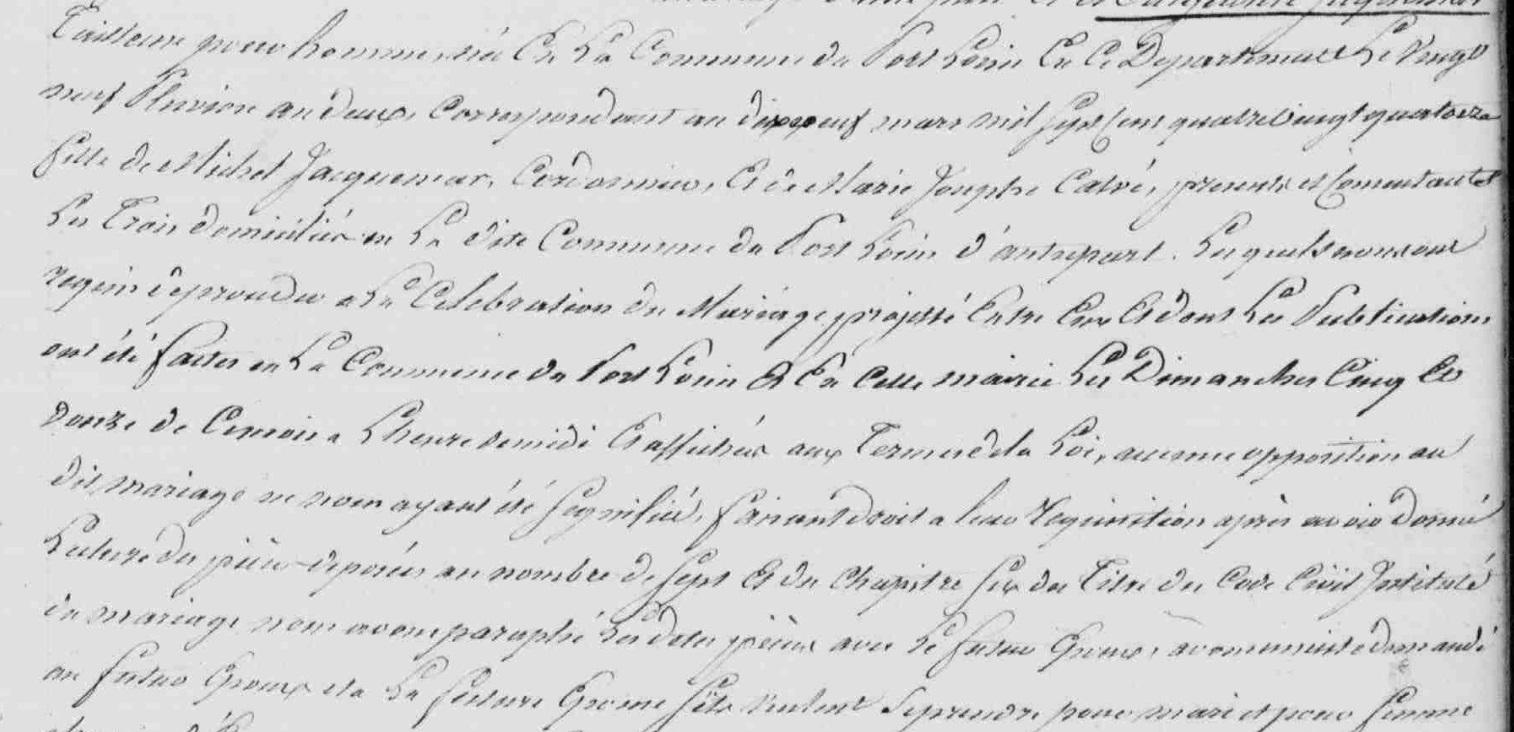 Tailleuse pour homme, née En La Commune du Port Louis En Ce Département Le Vingt
neuf Pluviose an deux, Correspondant au dix neuf mars mil Sept Cent quatre Vingt quatorze
fille de Michel Jacquemar, Cordonnier, Et de Marie Josephe Calvé, présents et Consentants
Les Trois domiciliés en La dite Commune du Port Louis d'autre part. Lesquels nous ont
requis de proceder a La Celebration du Mariage projetté Entre Eux Et dont Les Publications
ont été faites en La Commune du Port Louis Et En Cette mairie Les Dimanches Cinq Et
douze de Ce mois a L'heure de midi Et affichées aux Termes de la Loi, aucune opposition au
dit mariage ne nous ayant été Signifiée, faisant droit a leur requisition après avoir donné
Lecture des pièces deposées au nombre de Sept Et du Chapitre Six du Titre du Code Civil Intitulé
du mariage nous avons paraphé Les dites pièces avec Le futur Epoux, avons ensuite demandé
au futur Epoux et a La future Epouse S'ils Veulent Se prendre pour mari et pour femme